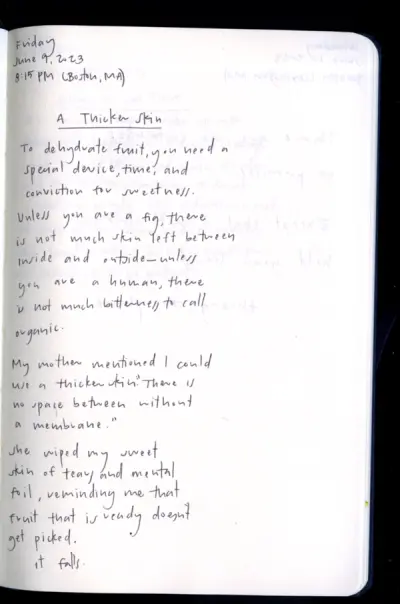 Friday
June 9, 2023
8:15 PM (Boston, MA)
A Thicker Skin
To dehydrate fruit, you need a
special device, time, and
conviction for sweetness.
Unless you are a fig, there
is not much skin left between
inside and outside—unless
you are a human, there
is not much bitterness to call
organic.
My mother mentioned I could
use a thicker skin. "There is
no space between without
a membrane."
She wiped my sweet
skin of tears and mental
foil, reminding me that
fruit that is ready doesn't
get picked.
it falls.